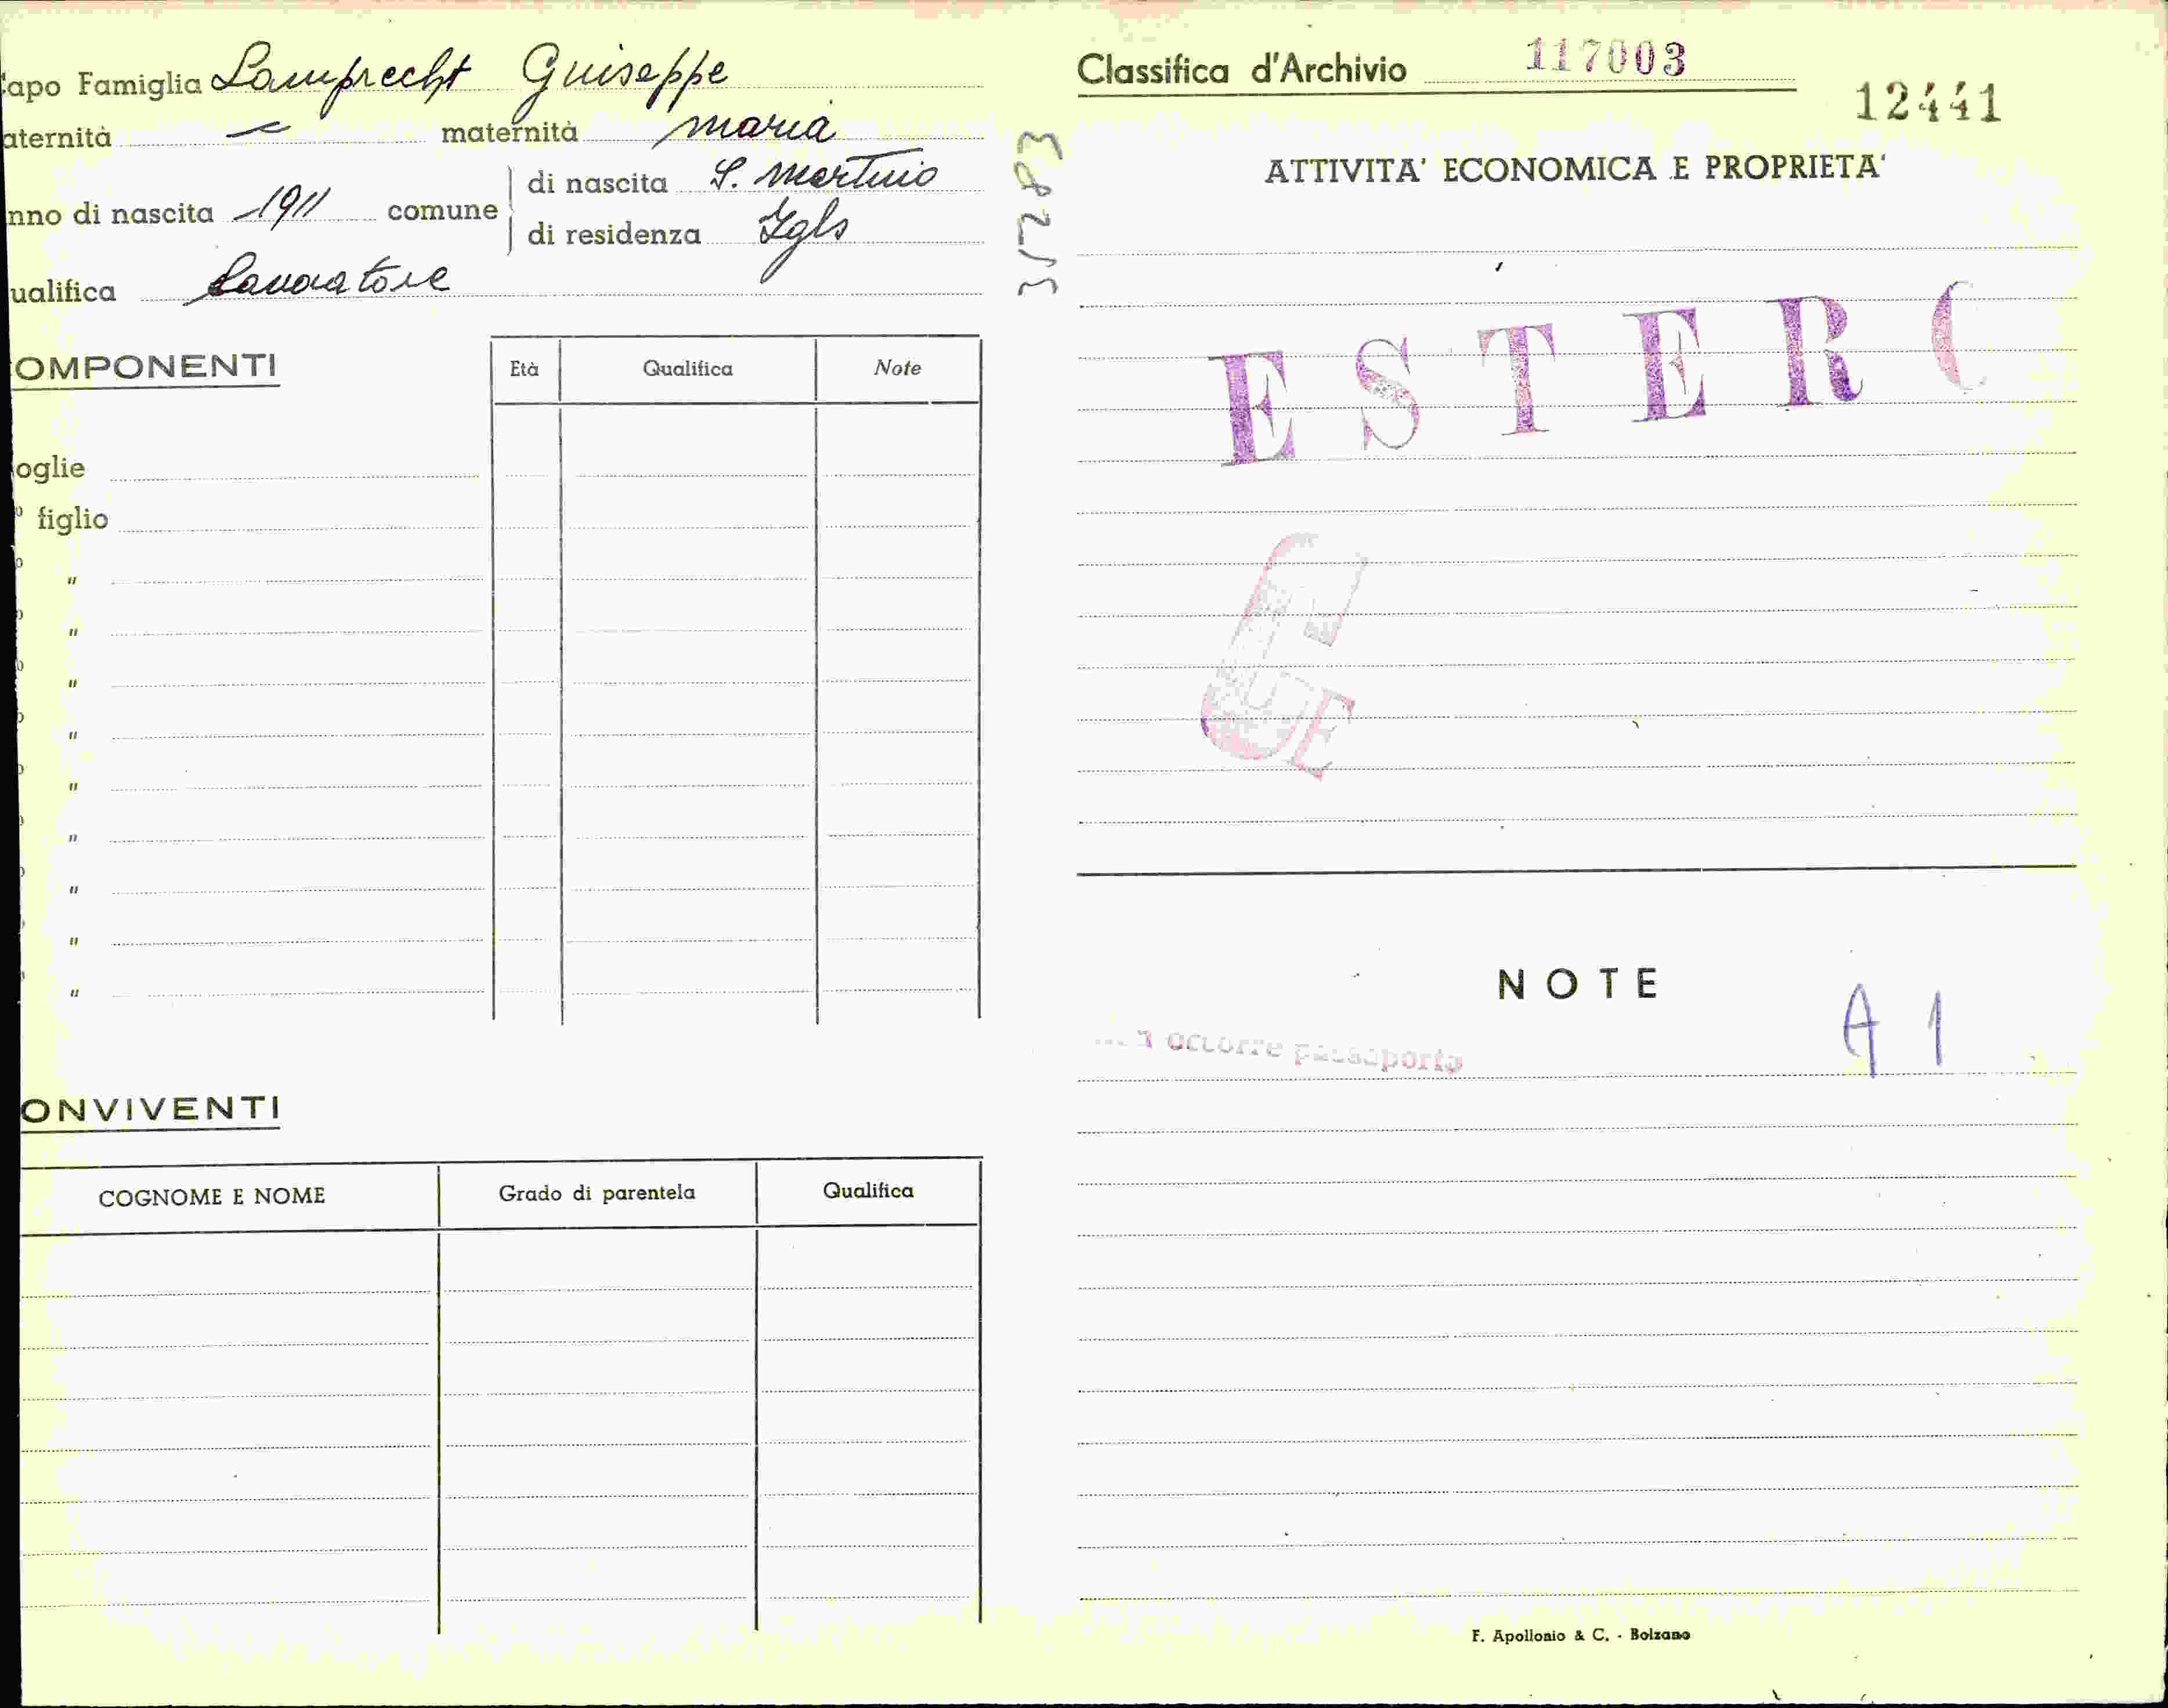 apo Famiglia Lamprecht Guiseppe
aternità — maternità maria
nno di nascita 1911 comune di nascita S. Martino
di residenza Igls
ualifica Lavoratore
OMPONENTI Età Qualifica Note
oglie
º figlio
"
"
"
"
"
"
"
"
"
ONVIVENTI
COGNOME E NOME Grado di parentela Qualifica
Classifica d'Archivio 117003
12441
ATTIVITA' ECONOMICA E PROPRIETA'
ESTERO
NOTE
A 1
occorre passaporto
F. Apollonio & C. - Bolzano